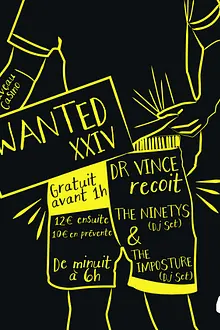 Nouveau
Casino
WANTED
XXIV
Gratuit
avant 1h
12€ ensuite
10€ en prévente
De minuit
à 6h
DR VINCE
recoit
THE NINETYS
(DJ Set)
&
THE
IMPOSTURE
(DJ Set)